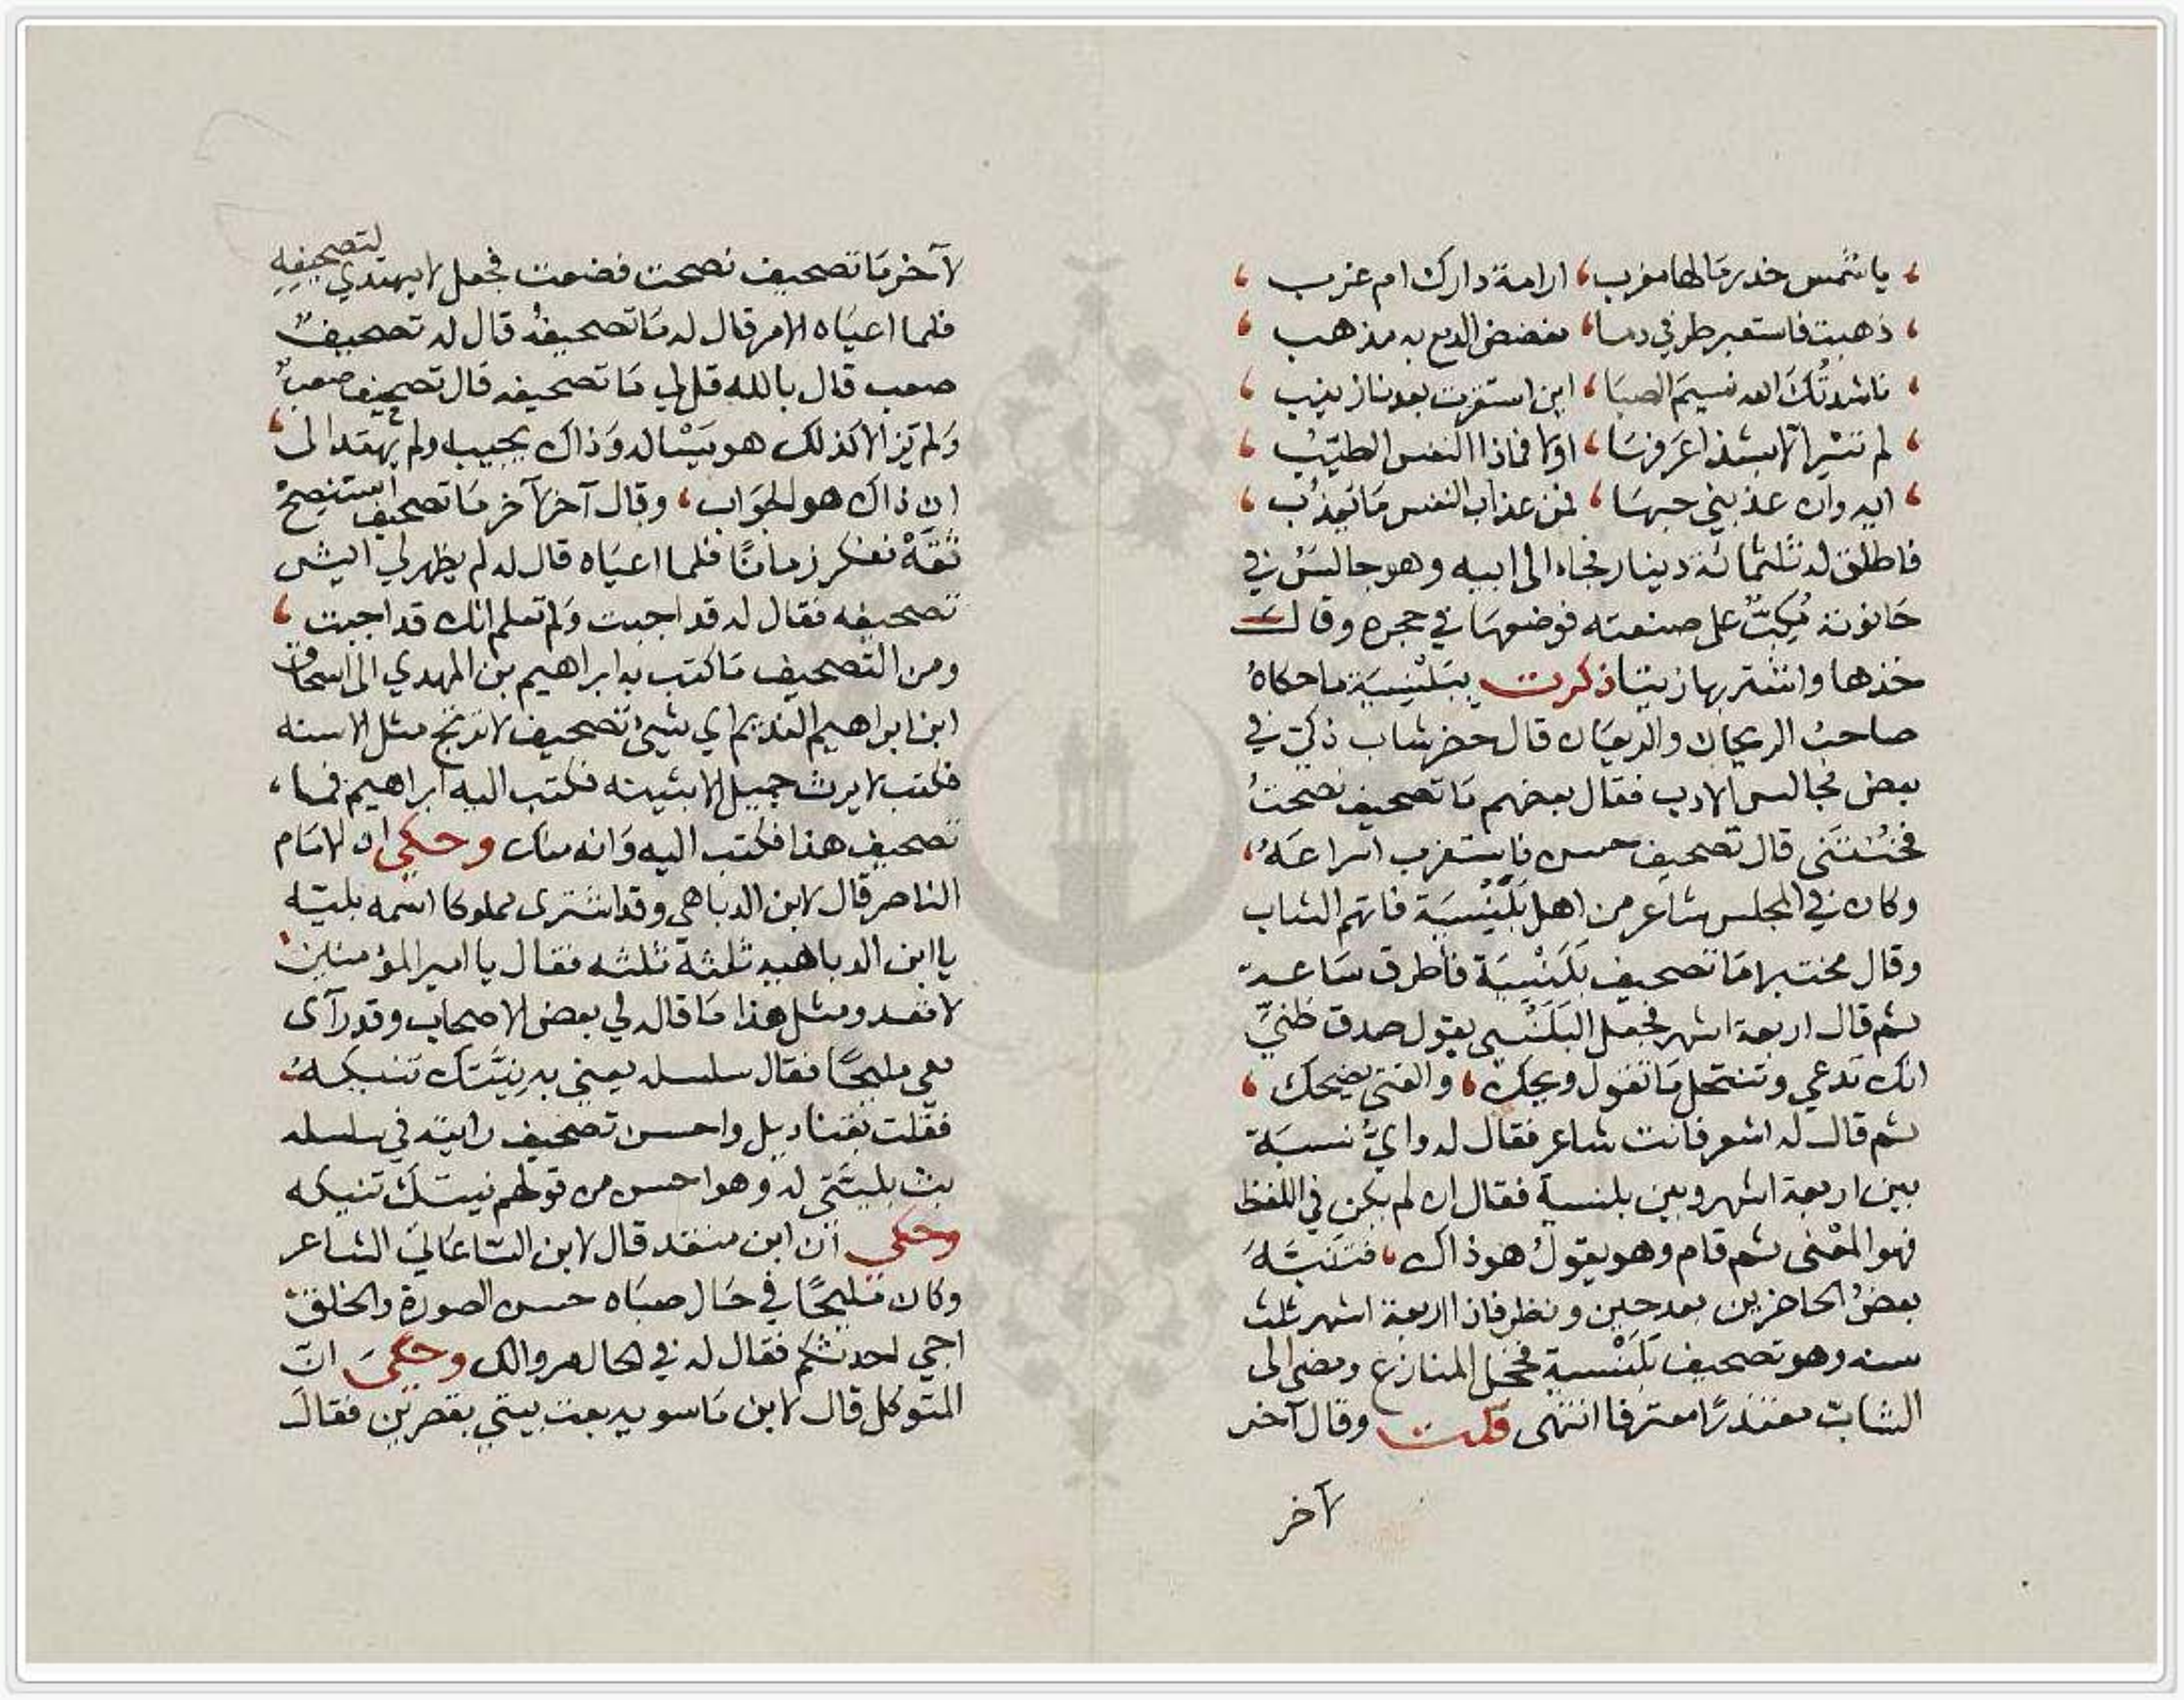 يا شمس خدر مالها مغرب، ارامة دارك ام غرب،
ذهبت فاستعبر طرفي دما، مفضض الدمع به مذهب،
ناشدتك الله نسيم الصبا، اين استقرت بعدنا زينب،
لم تسر الا بشذا عرفها، اولا فماذا النفس الطيب،
ايه وان عذبني حبها، فمن عذاب النفس ما يعذب،
فاطلق له ثلثمائة دينار فجاء الى ابيه وهو جالس في
حانوته مكب على صنعته فوضعها في حجره وقال
خذها واشتر بها زيتا ذكرت ببلنسية ما حكاه
صاحب الريحان والريعان قال حضر شاب ذكي في
بعض مجالس الادب فقال بعضهم ما تصحيف نصحت
فخنتني قال تصحيف حسن فاستغرب اسراعه،
وكان في المجلس شاعر من اهل بلنسية فاتهم الشاب
وقال مختبرا ما تصحيف بلنسية فأطرق ساعة
ثم قال اربعة اشهر فجعل البلنسي يقول صدق ظني
انك تدعي وتنتحل ما تقول ويحك، والفتى يضحك،
ثم قال له اشعر فانت شاعر فقال له واي نسبة
بين اربعة اشهر وبين بلنسية فقال ان لم يكن في اللفظ
فهو المعنى ثم قام وهو يقول هو ذاك، فتنبه
بعض الحاضرين بعد حين ونظر فاذا اربعة اشهر ثلث
سنه وهو تصحيف بلنسية فخجل المنازع ومضى الى
الشاب معتذرا معترفا انتهى قلت وقال آخر
لآخر
لآخر ما تصحيف نصحت فضعت فجعل لا يهتدي لتصحيفه
فلما اعياه الامر قال له ما تصحيفه قال له تصحيف
صعب قال بالله قل لي ما تصحيفه قال تصحيف صعب
ولم يزالا كذلك هو يسأله وذاك يجيب ولم يهتد الى،
ان ذاك هو الجواب، وقال آخر لآخر ما تصحيف استنصح
ثقة نفكر زمانا فلما اعياه قال له لم يظهر لي ايش
تصحيفه فقال له قد اجبت ولم تعلم انك قد اجبت،
ومن التصحيف ما كتب به ابراهيم بن المهدي الى اسحاق
ابن ابراهيم النديم اي شيئ تصحيف لا تريح مثل الاسنه
فكتب لا يرث جميل الا بثينه فكتب اليه ابراهيم فما،
تصحيف هذا فكتب اليه وانه وحكي ان الامام
الناصر قال لابن الدباهي وقد اشترى مملوكا اسمه بلبيه
يا ابن الدباهيه ثلثة ثلثه فقال يا امير المؤمنين
لا تعد ومثل هذا ما قاله لي بعض الاصحاب وقد رآى
معي مليحا فقال سلسله يعني به نيتك تنيكه
فقلت بقناديل واحسن تصحيف رايته في سلسله
بث بليتي له وهو احسن من قولهم نيتك تنيكه
وحكي ان ابن منقذ قال لابن الساعاتي الشاعر
وكان مليحا في حال صباه حسن الصورة والخلق
اجي لحد ثكم فقال له في الحال مر والك وحكي ان
المتوكل قال لابن ماسويه بعت بيتي بقصرين فقال